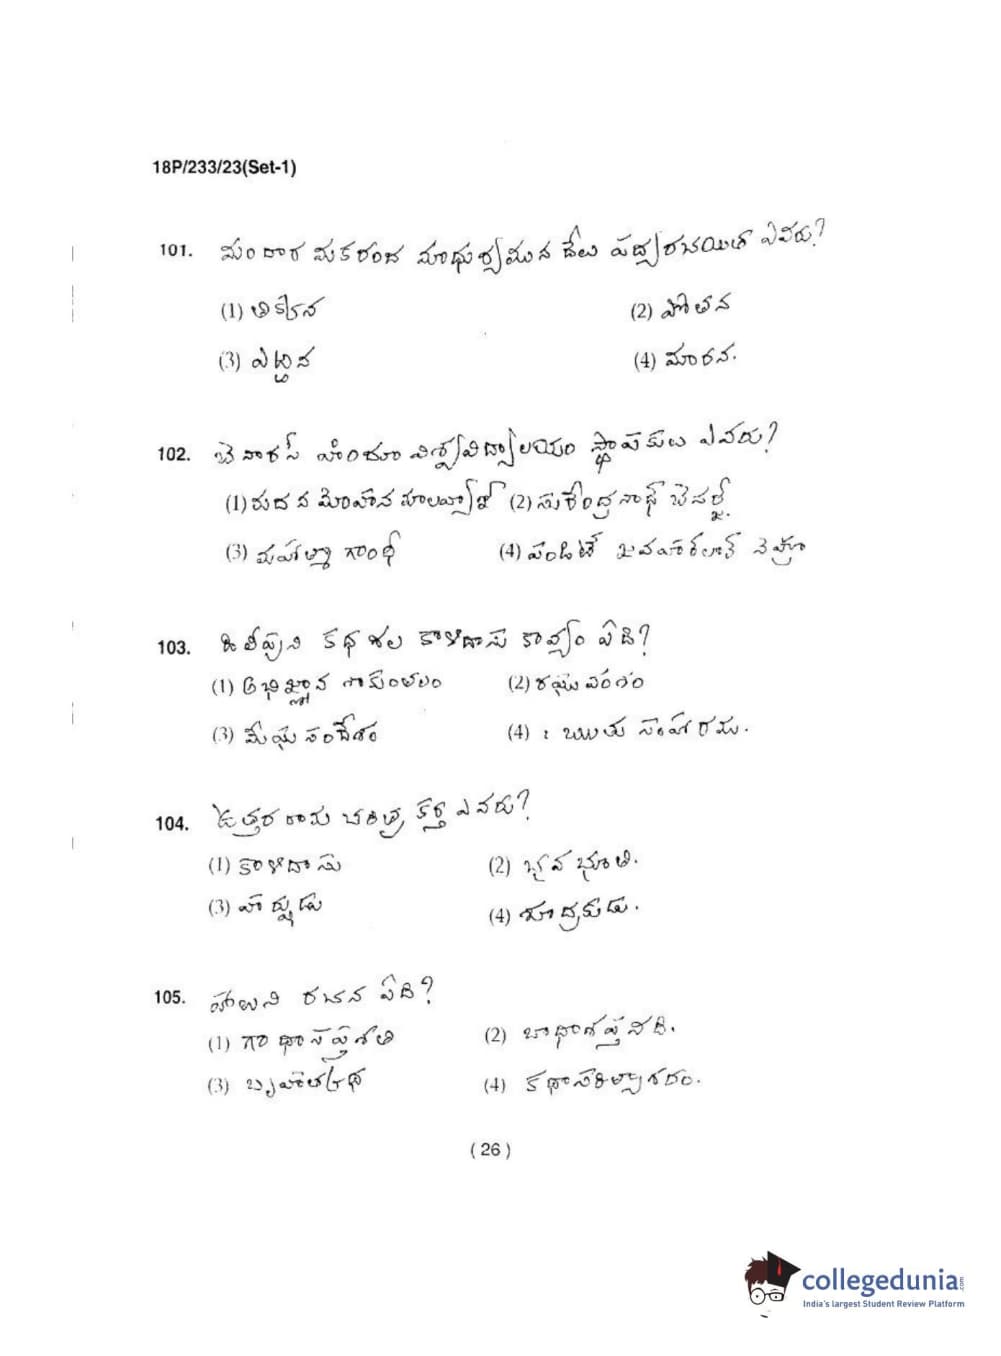 18P/233/23(Set-1)
101. మందార మకరంద మాధుర్యమున దేలు పద్యరచయిత ఎవరు?
(1) తిక్కన (2) పోతన
(3) ఎఱ్ఱన (4) మారన.
102. బెనారస్ హిందూ విశ్వవిద్యాలయం స్థాపకులు ఎవరు?
(1) మదన మోహన మాలవ్యాజీ (2) సురేంద్రనాథ్ బెనర్జీ
(3) మహాత్మా గాంధీ (4) పండిట్ జవహర్‌లాల్ నెహ్రూ
103. దిలీపుని కథ గల కాళిదాసు కావ్యం ఏది?
(1) అభిజ్ఞాన శాకుంతలం (2) రఘు వంశం
(3) మేఘ సందేశం (4) : ఋతు సంహారము.
104. ఉత్తర రామ చరిత్ర కర్త ఎవరు?
(1) కాళిదాసు (2) భవభూతి.
(3) హర్షుడు (4) శూద్రకుడు.
105. హాలుని రచన ఏది?
(1) గాథాసప్తశతి (2)
(3) బృహత్కథ (4) కథాసరిత్సాగరం.
( 26 )
collegedunia.com
India's largest Student Review Platform